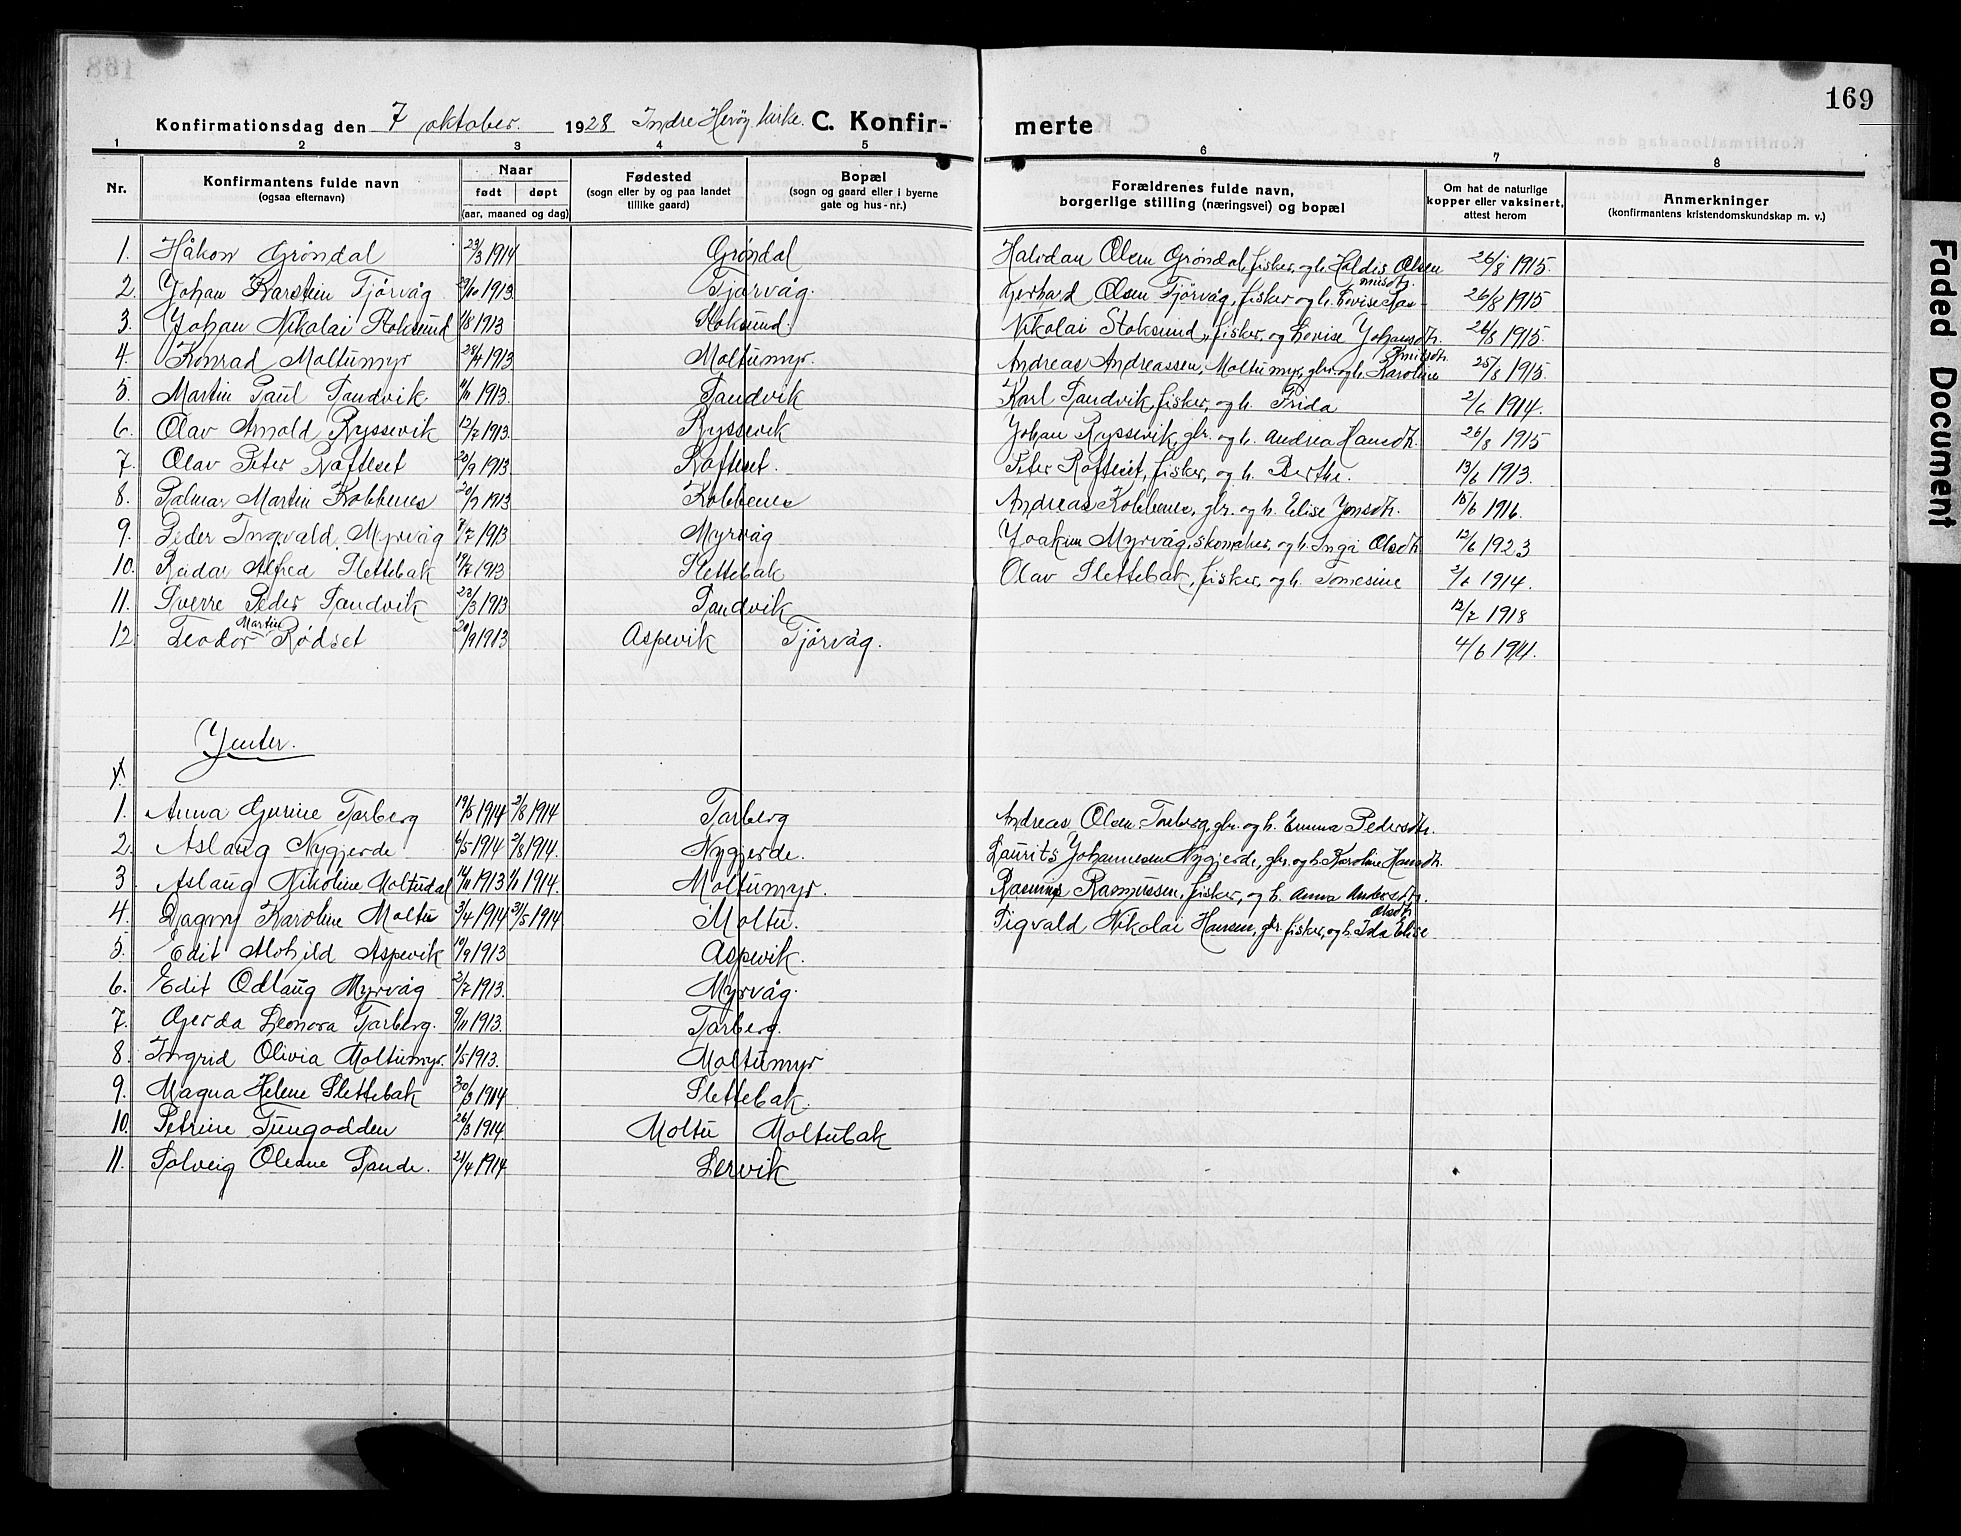 169
Konfirmationsdag den 7 oktober. 1928 Indre Herøy kirke. C. Konfir- merte
1 2 3 4 5 6 7 8
Nr. Konfirmantens fulde navn (ogsaa efternavn) Naar født døpt (aar, maaned og dag) Fødested (sogn eller by og paa landet tillike gaard) Bopæl (sogn og gaard eller i byerne gate og hus-nr.) Forældrenes fulde navn, borgerlige stilling (næringsvei) og bopæl Om hat de naturlige kopper eller vaksinert, attest herom Anmerkninger (konfirmantens kristendomskundskap m. v.)
1. Håkon Grøndal 23/3 1914 Grøndal Halvdan Olsen Grøndal, fisker, og h. Haldis Olsen 26/8 1915.
2. Johan Karstein Tjörvåg 1913. Tjørvåg. Gerhard Olsen Tjörvåg, fisker og h. Lovise 26/8 1915
3. Johan Nikolai Stoksund 1/8 1913 Stoksund. Nikolai Stoksund, fisker, og Lovise Johansdtr. 26/8 1915.
4. Konrad Moltumyr 28/4 1913 Moltumyr. Andreas Andreassen, Moltumyr, gbr. og h. Karoline Knutsdtr. 25/8 1915.
5. Martin Paul Sandvik 11/11 1913. Sandvik Karl Sandvik, fisker, og h. Frida 2/6 1914.
6. Olav Arnold Ryssevik 12/7 1913. Ryssevik Johan Ryssevik, gbr. og h. Andrea Hansdtr. 26/8 1915
7. Olav Peter Rafteset 23/9 1913 Rafteset. Peter Rafteset, fisker, og h. Berthe. 13/6 1913.
8. Palmar Martin Kobbenes 20/9 1913 Kobbenes Andreas Kobbenes, gbr. og h. Elise Jonsdtr. 15/6 1916.
9. Peder Ingvald Myrvåg 9/7 1913 Myrvåg Joakim Myrvåg, skomaker, og h. Inga Olsdtr. 12/6 1923
10. Reidar Alfred Slettebak 19/7 1913 Slettebak Olav Slettebak, fisker, og h. Tomesine 2/6 1914.
11. Sverre Peder Sandvik 23/3 1913 Sandvik 12/7 1918
12. Teodor Martin Rødset 20/9 1913 Aspevik Tjörvåg. 4/6 1914.
Jenter.
1. Anna Gurine Tarberg 19/5 1914 2/8 1914 Tarberg Andreas Olsen Tarberg, gbr. og h. Emma Pedersdtr.
2. Aslaug Nygjerde 6/5 1914 2/8 1914. Nygjerde. Laurits Johannesen Nygjerde, gbr. og h. Karoline Hansdtr.
3 Aslaug Nikoline Moltudal 14/11 1913 1/1 1914. Moltumyr. Rasmus Rasmussen, fisker, og h. Anna Andersdtr.
4. Dagny Karoline Moltu 3/4 1914 31/5 1914 Moltu. Sigvald Nikolai Hansen, gbr. fisker, og h. Ida Elise Olsdtr.
5. Edit Alvhild Aspevik 10/9 1913 Aspevik.
6. Edit Odlaug Myrvåg 2/7 1913. Myrvåg.
7. Gerda Leonora Tarberg. 9/11 1913. Tarberg.
8. Ingrid Olivia Moltumyr. 1/5 1913. Moltumyr
9. Magna Helene Slettebak 30/3 1914 Slettebak.
10. Petrine Tungodden 26/3 1914 Moltu Moltubak
11. Solveig Oleane Sande. 21/4 1914 Lervik
Faded Document